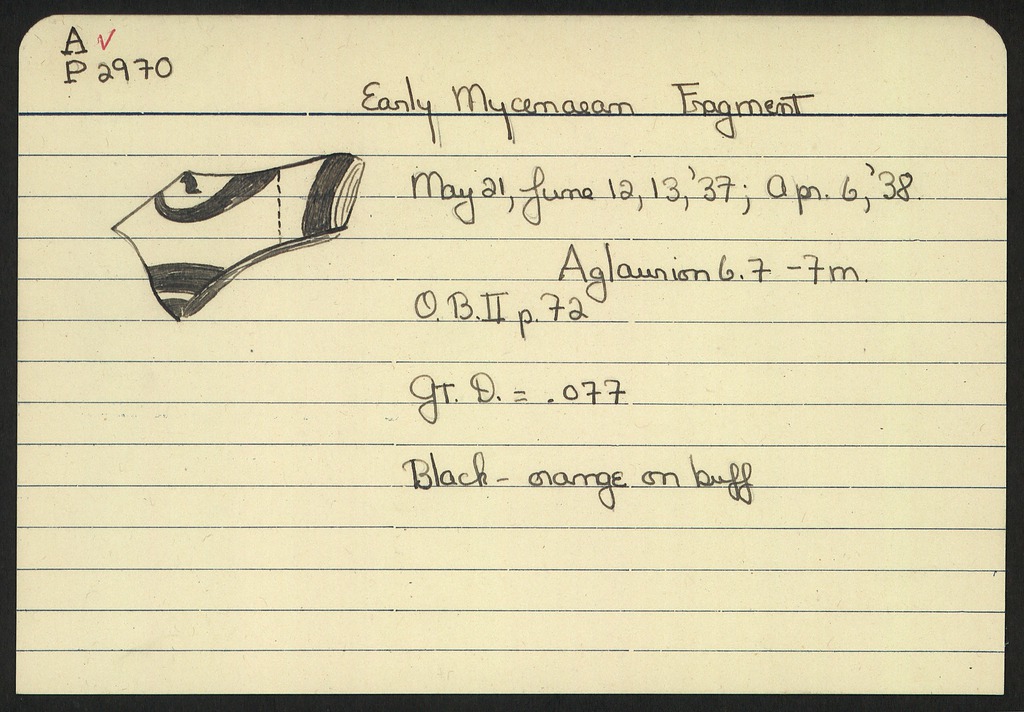 A ✓
P 2970
Early Mycenaean Fragment
May 21, June 12, 13, '37; Apr. 6, '38.
Aglaurion 6.7 - 7m.
O.B. II p. 72
GT. D. = .077
Black - orange on buff